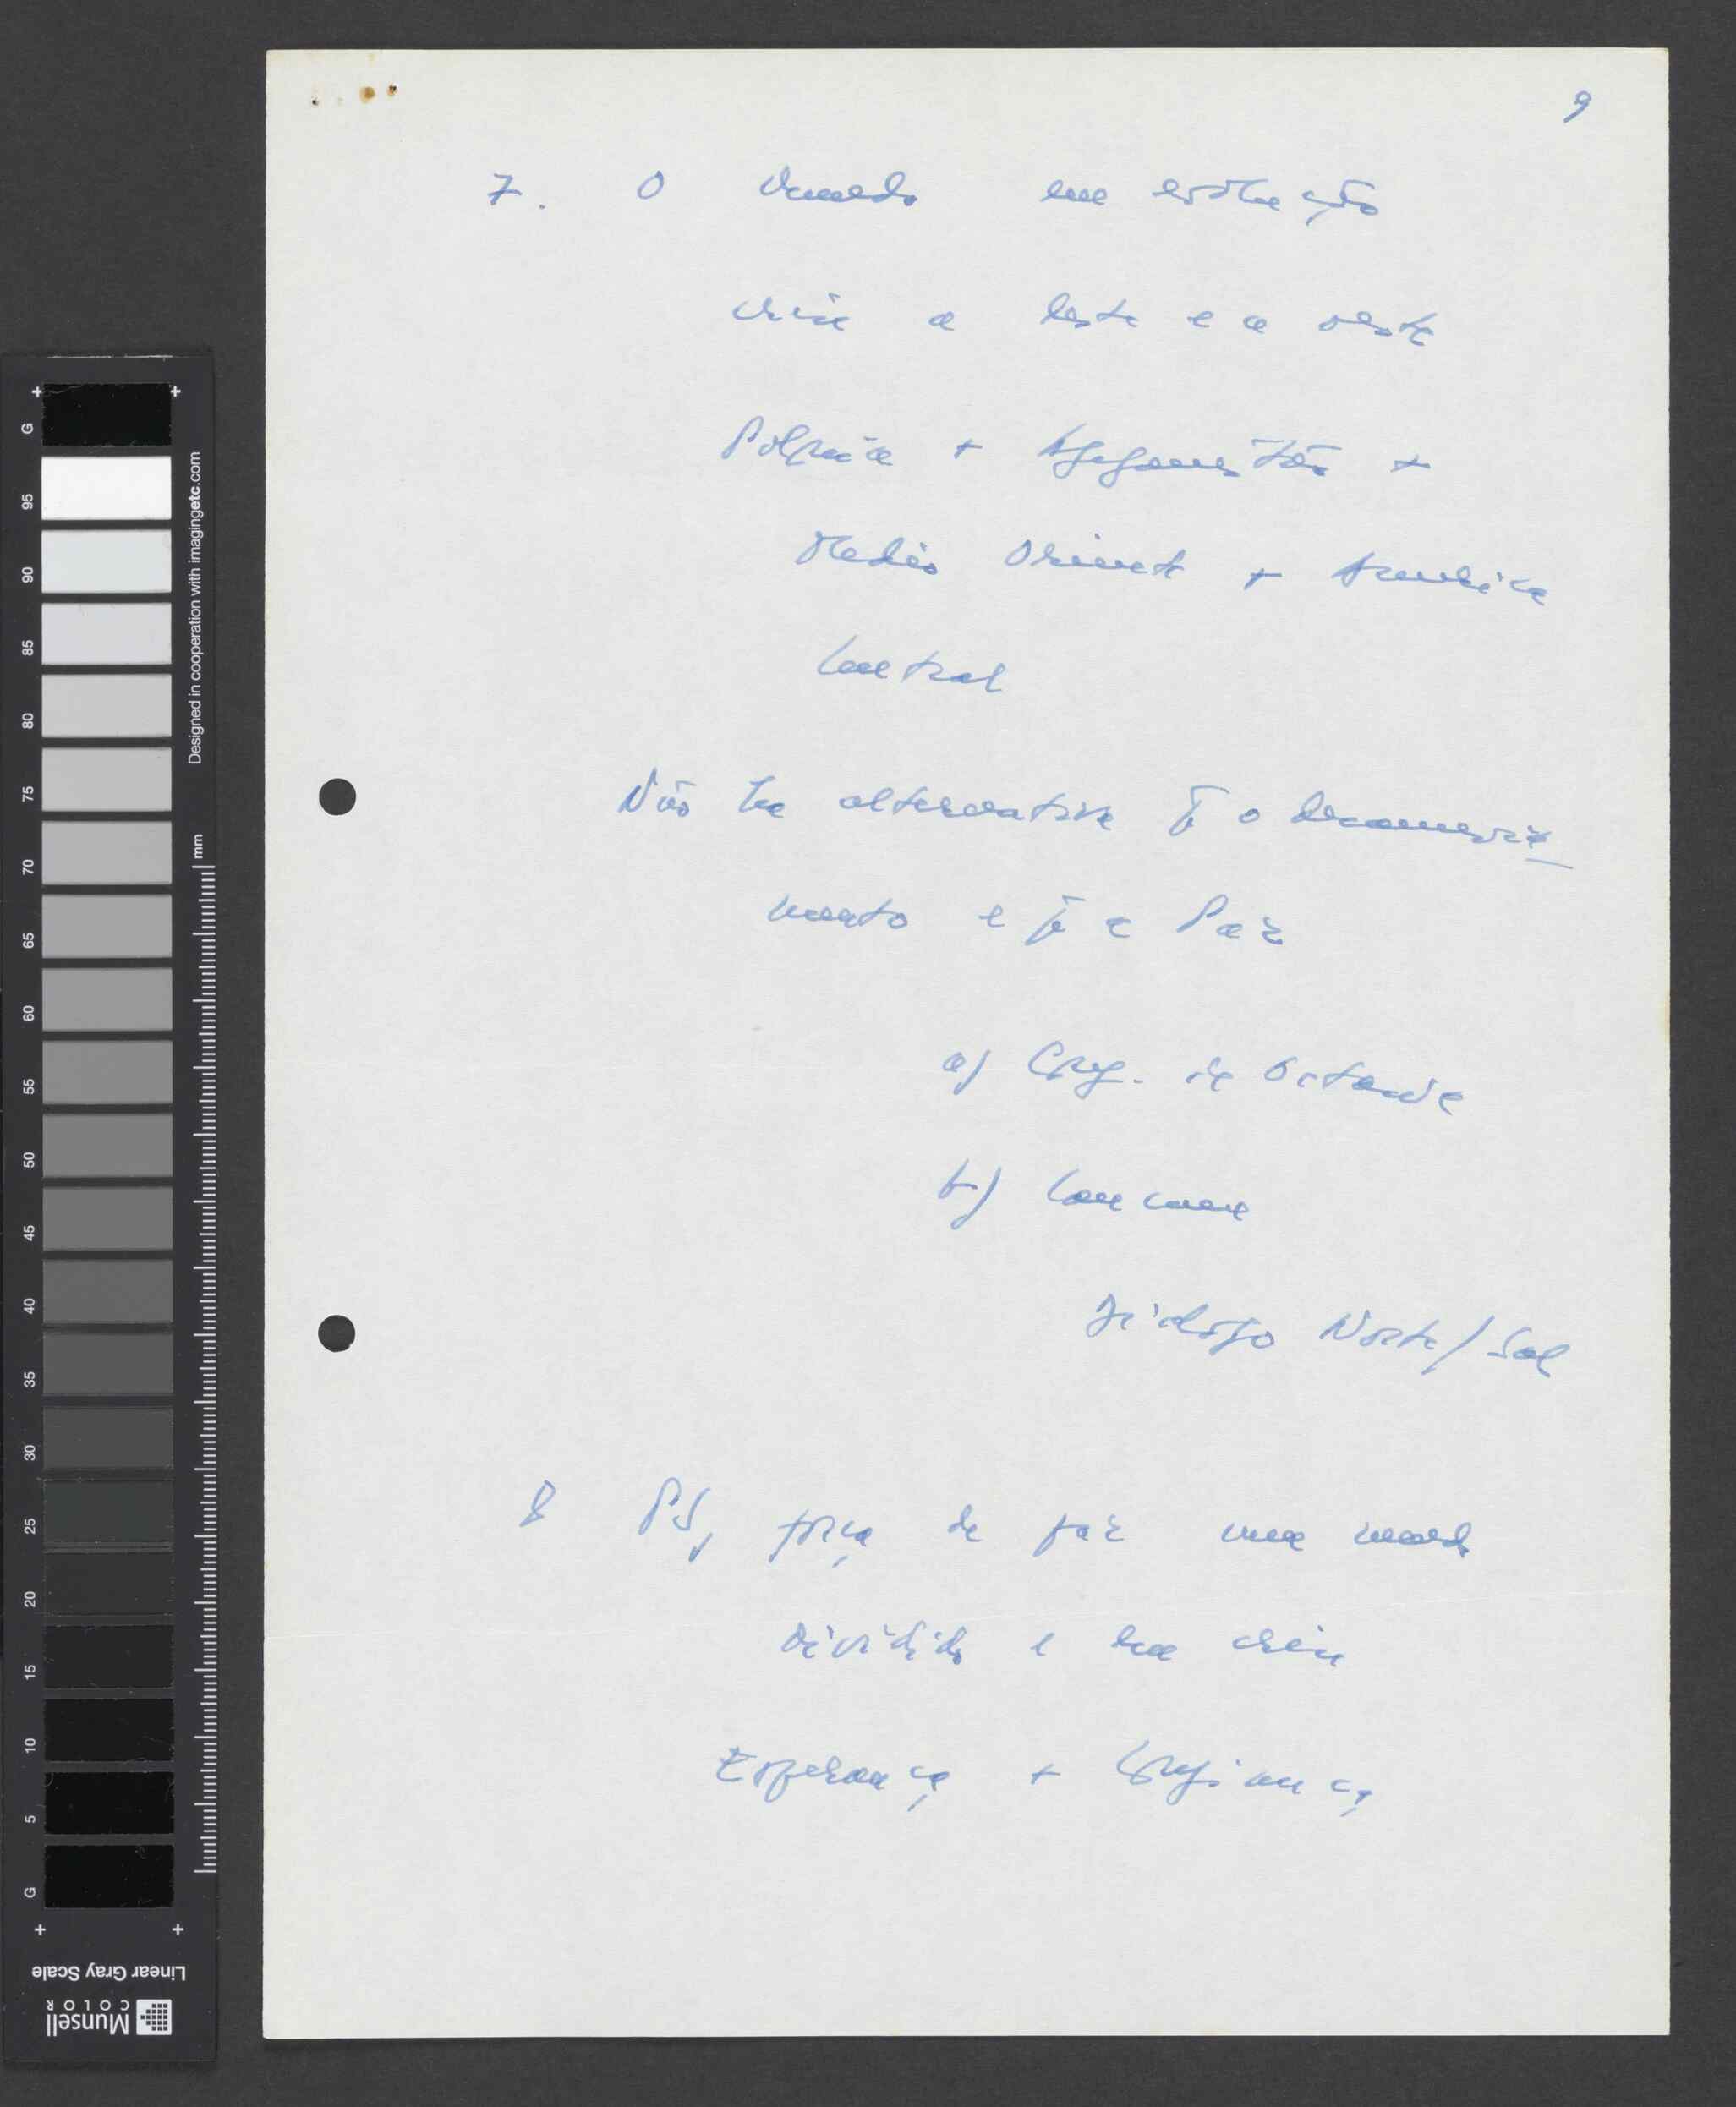 9
7. O mundo em evolução
crise a leste e a oeste
Polónia + Afeganistão +
Médio Oriente + América
Central
Não há alternativa p̄ o desanuvia
mento e p̄ a Paz
a) Conf. de Otawa
b) Cancun
Diálogo Norte/Sul
8 PS, força de paz num mundo
dividido e em crise
Esperança + Confiança
G
95
90
85
80
75
70
65
60
55
50
45
40
35
30
25
20
15
10
5
G
Designed in cooperation with imagingetc.com
mm
Linear Gray Scale
Munsell
COLOR